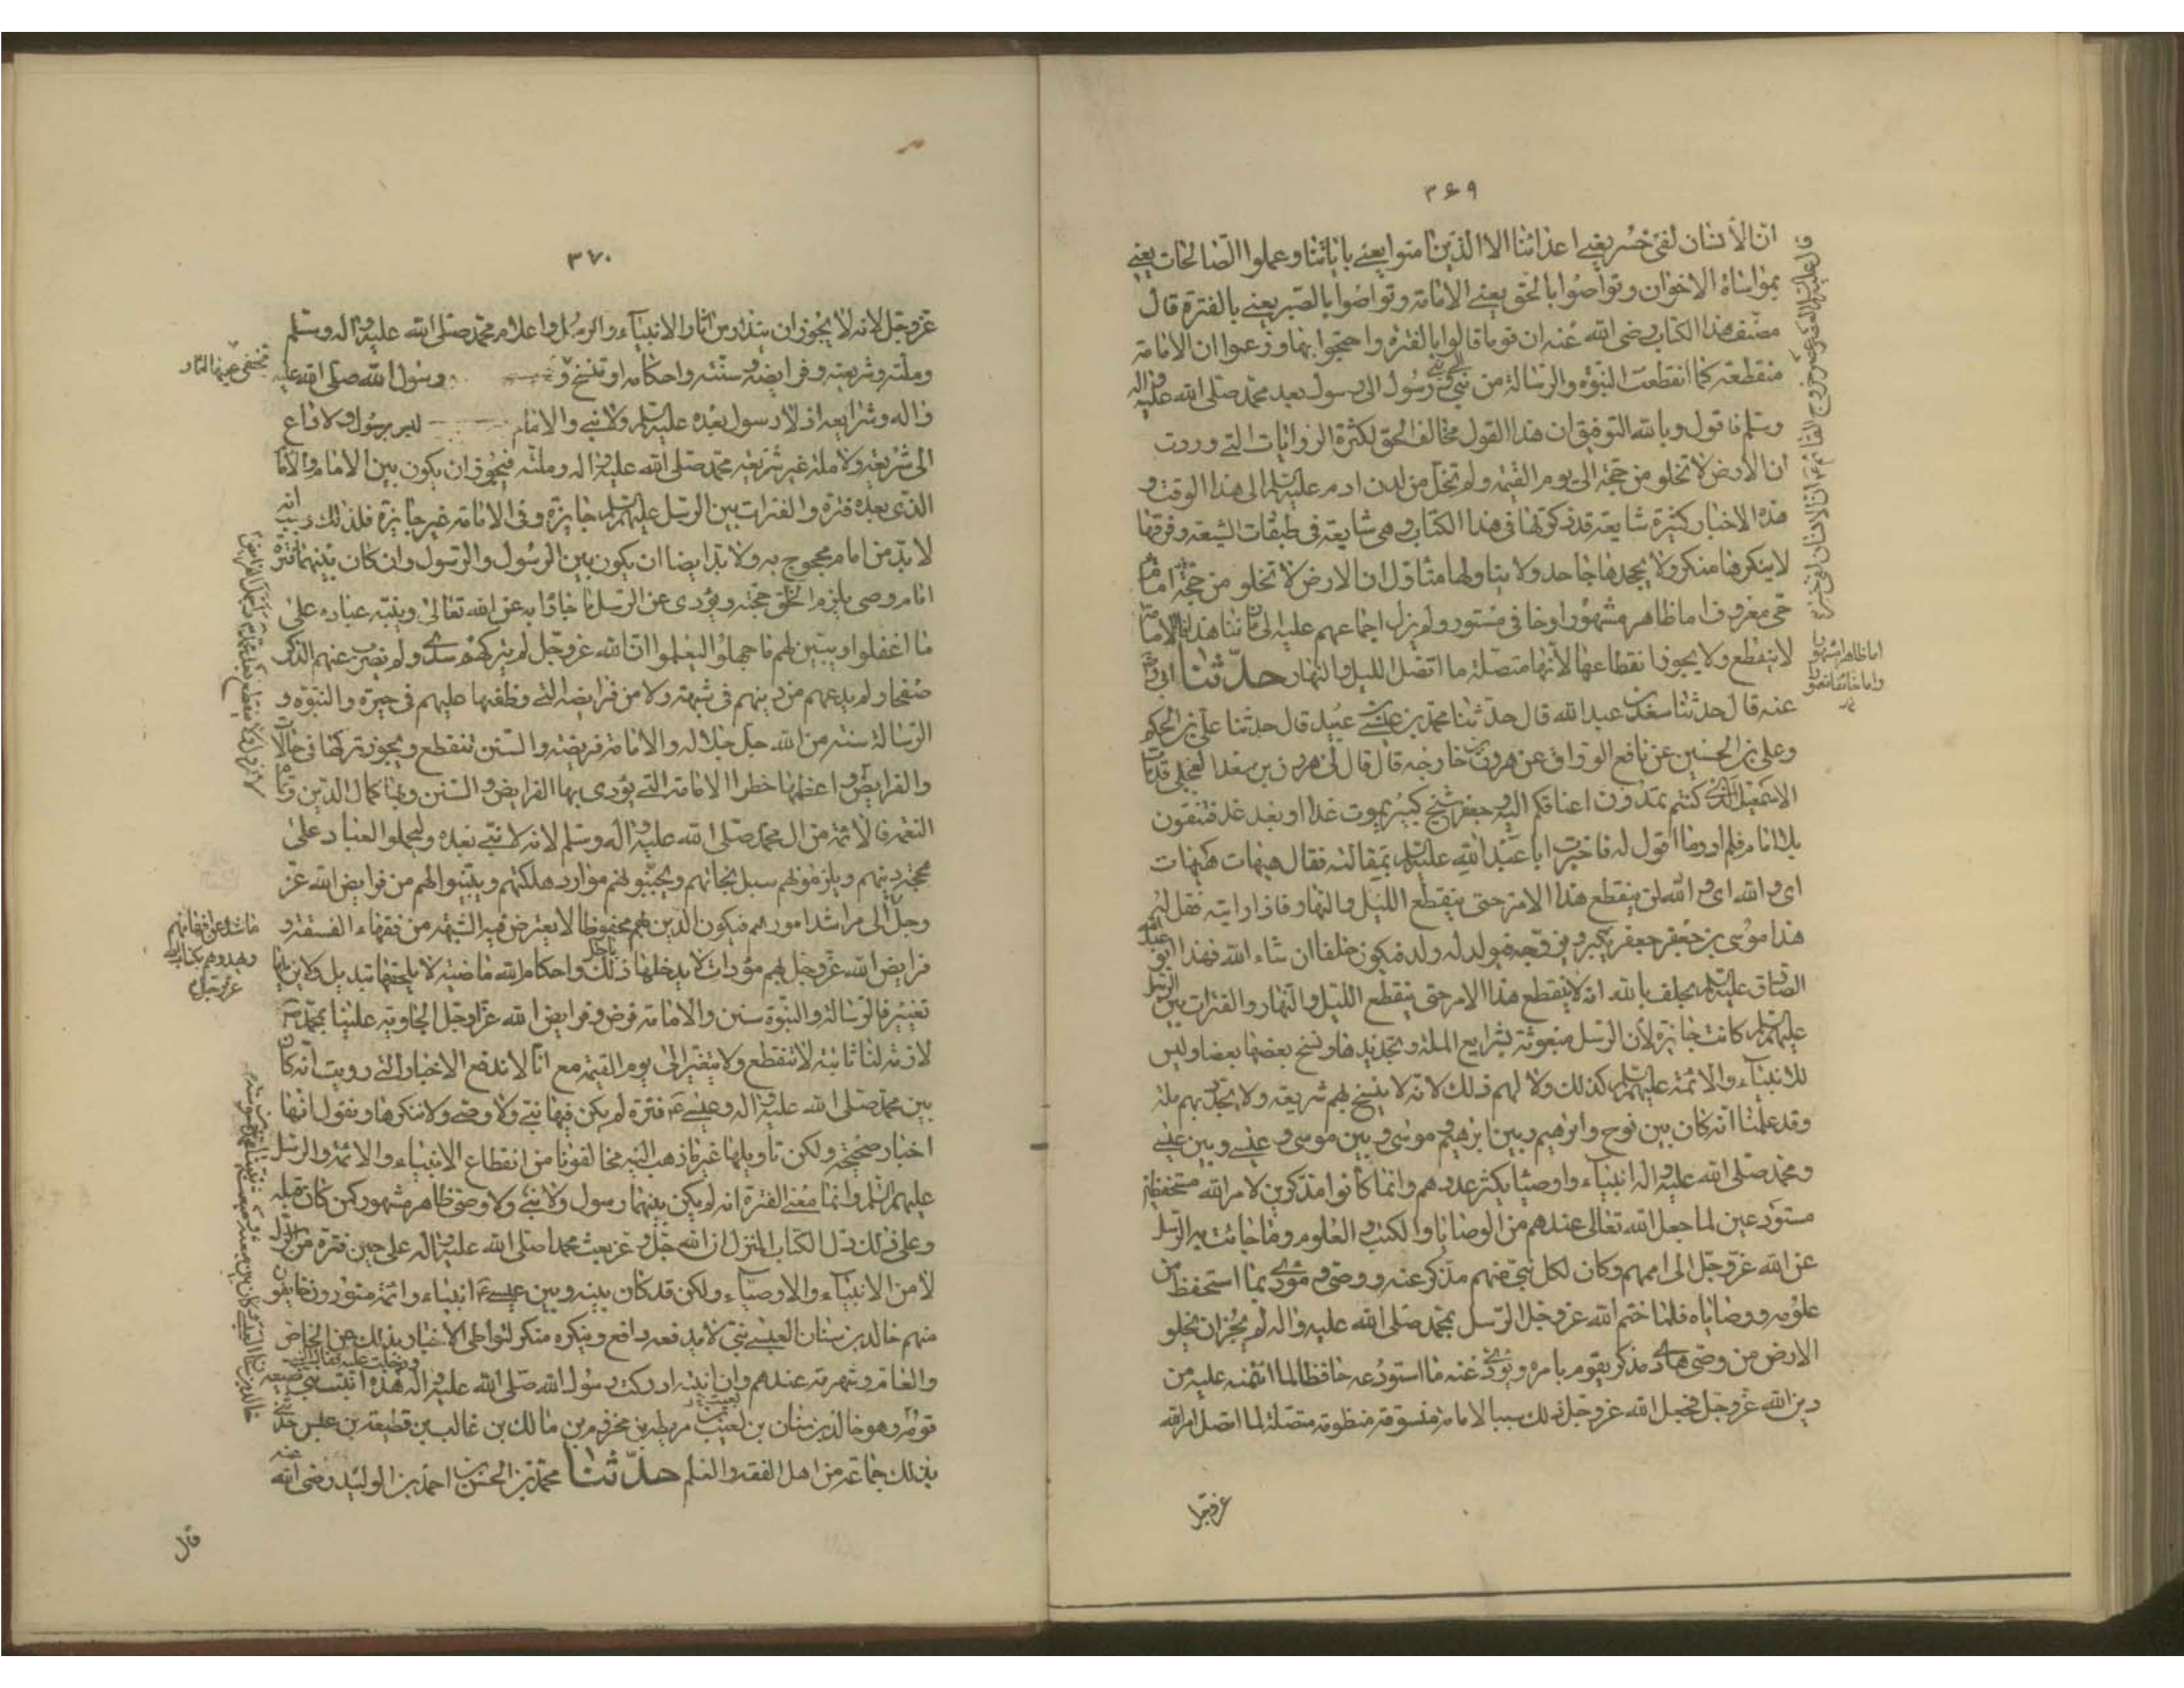 ۳۶۹
ان الأنسان لفی خسر یعنی اعدائنا الا الذین امنوا یعنی بایاتنا و عملوا الصالحات یعنی
بمواساة الاخوان و تواصوا بالحق یعنی الامامة و تواصوا بالصبر یعنی بالفترة قال
مصنف هذا الکتاب رضی الله عنه ان قوما قالوا بالفترة و احتجوا بها و زعموا ان الامامة
منقطعة کما انقطعت النبوة و الرسالة من نبی الی نبی و رسول الی رسول بعد محمد صلی الله علیه و اله
و سلم فاقول و بالله التوفیق ان هذا القول مخالف الحق لکثرة الروایات التی وردت
ان الارض لا تخلو من حجة الی یوم القیمة و لم تخل من لدن ادم علیه السلم الی هذا الوقت و
هذه الاخبار کثیرة شایعة قد ذکرتها فی هذا الکتاب و هی شایعة فی طبقات الشیعة و فرقها
لا ینکرها منکر و لا یجحدها جاحد و لا یتاولها متاول ان الارض لا تخلو من حجة امام
حی معروف اما ظاهر مشهور او خافی مستور و لم یزل اجماعهم علیه الی زماننا هذا فالامامة
لا ینقطع و لا یجوز انقطاعها لأنها متصلة ما اتصل اللیل و النهار حدثنا ابی رض
عنه قال حدثنا سعد بن عبد الله قال حدثنا محمد بن عیسی بن عبید قال حدثنا علی بن الحکم
و علی بن الحسین عن نافع الوراق عن هرون بن خارجة قال قال لی هرون بن سعد العجلی قد مات
الاسمعیل الذی کنتم تمدون اعناقکم الیه و جعفر شیخ کبیر یموت غدا او بعد غد فتبقون
بلا امام فلم ادر ما اقول له فاخبرت ابا عبد الله علیه السلم بمقالته فقال هیهات هیهات
ابی و الله ابی و الله ان ینقطع هذا الامر حتی ینقطع اللیل و النهار فاذا رایته فقل له
هذا موسی بن جعفر یکبر و یزوجه فیولد له ولد فیکون خلفا ان شاء الله فهذا ابو عبد الله
الصادق علیه السلم یحلف بالله انه لا ینقطع هذا الامر حتی ینقطع اللیل و النهار و الفترات بین الرسل
علیهم السلم کانت جایزة لأن الرسل مبعوثة بشرایع الملة و تجدیدها و نسخ بعضها بعضا و لیس
للانبیاء و الائمة علیهم السلم کذلک و لا لهم ذلک لانه لا ینسخ بهم شریعة و لا یجدد بهم ملة
و قد علمنا انه کان بین نوح و ابرهیم و بین ابرهیم و موسی و بین موسی و عیسی و بین عیسی
و محمد صلی الله علیه و اله انبیاء و اوصیا یکثر عددهم و انما کانوا مذکرین لامر الله مستحفظین
مستودعین لما جعل الله تعالی عندهم من الوصایا و الکتب و العلوم و ما جائت به الرسل
عن الله عز و جل الی اممهم و کان لکل نبی منهم مذکر عنه و وصی و مؤدی بما استحفظ من
علومه و وصایاه فلما ختم الله عز و جل الرسل بمحمد صلی الله علیه و اله لم یجز ان یخلو
الارض من وصی هادی مذکر یقوم بامره و یؤدی عنه ما استودعه حافظا لما ائتمنه علیه من
دین الله عز و جل فجعل الله عز و جل ذلک سببا لامامة منسوقة منظومة متصلة لما اتصل امر الله
عز و جل
اما ظاهر مشهور
و اما خائفا مغمور
۳۷۰
عز و جل لانه لا یجوز ان یندرس اثار الانبیاء و الرسل و اعلام محمد صلی الله علیه و اله و سلم
و ملته و شریعته و فرایضه و سنته و احکامه او تنسخ و رسول الله صلی الله علیه
و اله و شرایعه اذ لا رسول بعده علیه السلم و لا نبی و الامام لیس برسول و لا داع
الی شریعة و لا ملة غیر شریعة محمد صلی الله علیه و اله و ملته فیجوز ان یکون بین الامام و الامام
الذی بعده فترة و الفترات بین الرسل علیهم السلم جایزة و فی الامامة غیر جایزة فلذلک وجب انه
لا بد من امام محجوج به و لا بد ایضا ان یکون بین الرسول و الرسول و ان کان بینهما فترة
امام وصی یلزم الخلق حجته و یؤدی عن الرسل ما جاؤا به عن الله تعالی و ینبه عباده علی
ما اغفلوا و یبین لهم ما جهلوا لیعلموا ان الله عز و جل لم یترکهم سدی و لم یضرب عنهم الذکر
صفحا و لم یدعهم من دینهم فی شبهة و لا من فرایضه التی وظفها علیهم فی حیرة و النبوة و
الرسالة سنة من الله جل جلاله و الامامة فریضة و السنن تنقطع و یجوز ترکها فی حالات
و الفرایض و اعظمها خطرا الامامة التی یؤدی بها الفرایض و السنن و بها کمال الدین و تمام
النعمة فالائمة من ال محمد صلی الله علیه و اله و سلم لانه لا نبی بعده و لیحملوا العباد علی
محجة دینهم و یلزموهم سبل نجاتهم و یجنبوهم موارد هلکتهم و یبینوا لهم من فرایض الله عز
و جل الی مراشد امورهم فیکون الدین بهم محفوظا لا یعترض فیه الشبهة من فقهاء الفسقة و
فرایض الله عز و جل بهم مؤداة لا یدخلها باطل و احکام الله ماضیة لا یلحقها تبدیل و لا یزیلها
تغییر فالرسالة و النبوة سنن و الامامة فرض و فرایض الله عز و جل الجاریة علینا بمحمد ص
لازمة لنا ثابتة لا تنقطع و لا یتغیر الی یوم القیمة مع انا لا ندفع الاخبار التی رویت انه کان
بین محمد صلی الله علیه و اله و عیسی ع فترة لم یکن فیها نبی و لا وصی و لا ننکرها و نقول انها
اخبار صحیحة و لکن تاویلها غیر ما ذهب الیه مخالفونا من انقطاع الانبیاء و الائمة و الرسل
علیهم السلم و انما معنی الفترة انه لم یکن بینهما رسول و لا نبی و لا وصی ظاهر مشهور کمن کان قبله
و علی ذلک دل الکتاب المنزل ان الله جل و عز بعث محمدا صلی الله علیه و اله علی حین فترة من الرسل
لا من الانبیاء و الاوصیاء و لکن قد کان بینه و بین عیسی ع انبیاء و ائمة مستورون خایفون
منهم خالد بن سنان العبسی نبی لا یدفعه دافع و ینکره منکر لتواطی الاخبار بذلک عن الخاص
و العام و شهرته عندهم و ان ابنته ادرکت رسول الله صلی الله علیه و اله و دخلت علیه فقال النبی هذه ابنة نبی ضیعه
قومه و هو خالد بن سنان بن بعیث بن مریطة بن مخزوم بن مالک بن غالب بن قطیعة بن عبس حدثنی
بذلک جماعة من اهل الفقه و العلم حدثنا محمد بن الحسن بن احمد بن الولید رضی الله عنه
قال